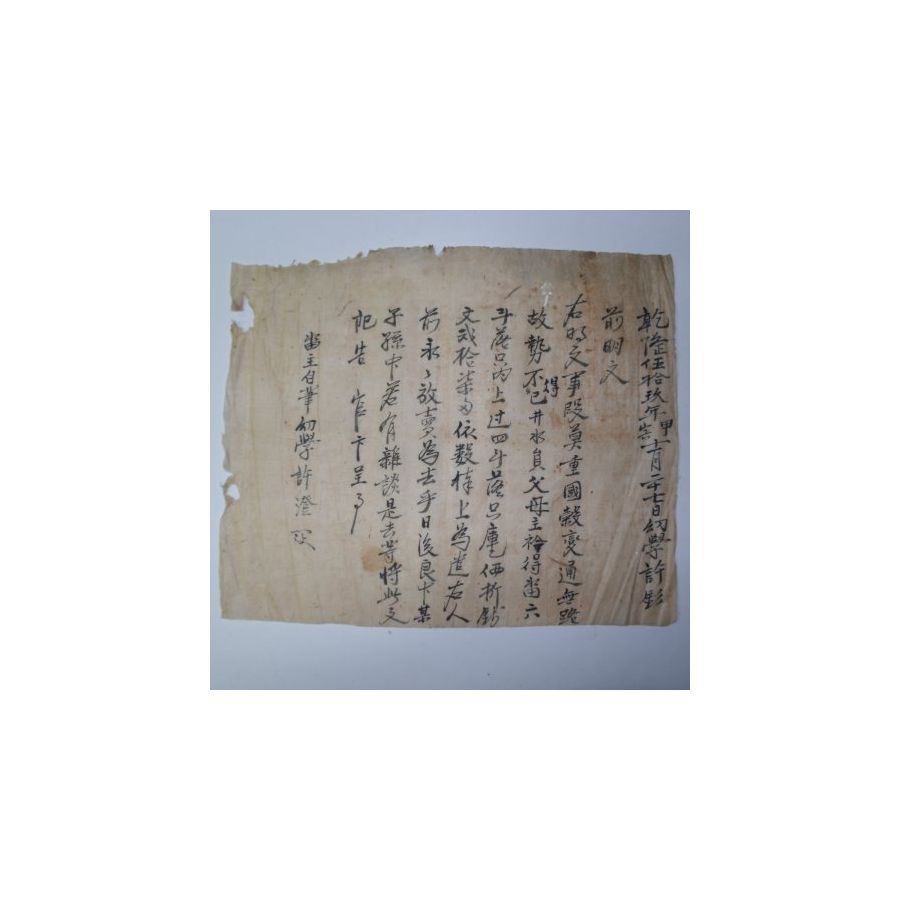 乾隆伍拾玖年甲寅十一月二十七日幼學許
前明文
右明文事段莫重國穀變通無路
故勢不得已井水員父母主衿得畓六
斗落只內上过四斗落只庫乙価折錢
文貳拾柒兩依數捧上為遣右人
前永〻放賣為去乎日後良中某
子孫中若有雜談是去等將此文
記告官卞呈事
畓主自筆幼學許澄